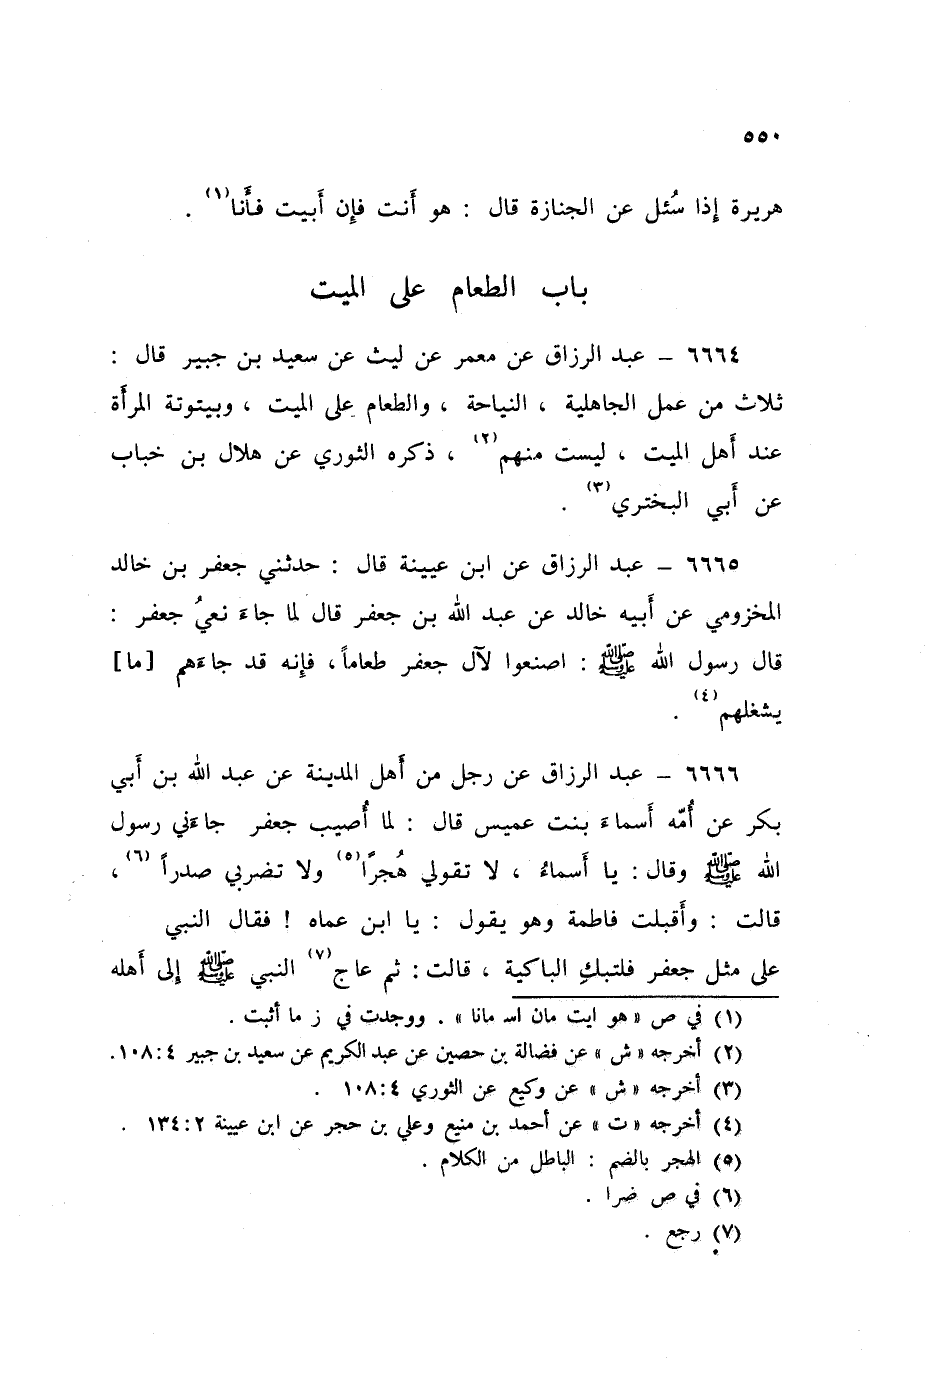 ٥٥٠
هريرة إذا سُئل عن الجنازة قال : هو أَنت فإِن أَبيت فأَنا(١) .
باب الطعام على الميت
٦٦٦٤ – عبد الرزاق عن معمر عن ليث عن سعيد بن جبير قال :
ثلاث من عمل الجاهلية ، النياحة ، والطعام على الميت ، وبيتوتة المرأَة
عند أَهل الميت ، ليست منهم(٢) ، ذكره الثوري عن هلال بن خباب
عن أَبي البختري(٣) .
٦٦٦٥ – عبد الرزاق عن ابن عيينة قال : حدثني جعفر بن خالد
المخزومي عن أَبيه خالد عن عبد الله بن جعفر قال لما جاءَ نعيُ جعفر :
قال رسول الله ﷺ : اصنعوا لآل جعفر طعاماً، فإِنه قد جاءَهم [ما]
يشغلهم(٤) .
٦٦٦٦ – عبد الرزاق عن رجل من أَهل المدينة عن عبد الله بن أَبي
بكر عن أُمّه أَسماءَ بنت عميس قال : لما أُصيب جعفر جاءَني رسول
الله ﷺ وقال: يا أَسماءُ ، لا تقولي هُجرًا(٥) ولا تضربي صدراً (٦)،
قالت : وأَقبلت فاطمة وهو يقول : يا ابن عماه ! فقال النبي
على مثل جعفر فلتبكِ الباكية ، قالت: ثم عاج(٧) النبي ﷺ إِلى أَهله
(١) في ص « هو ايت مان اسـ مانا » . ووجدت في ز ما أثبت .
(٢) أخرجه « ش » عن فضالة بن حصين عن عبد الكريم عن سعيد بن جبير ٤ :١٠٨.
(٣) أخرجه « ش » عن وكيع عن الثوري ٤ :١٠٨ .
(٤) أخرجه « ت » عن أحمد بن منيع وعلي بن حجر عن ابن عيينة ٢ :١٣٤ .
(٥) الهجر بالضم : الباطل من الكلام .
(٦) في ص ضرا .
(٧) رجع .